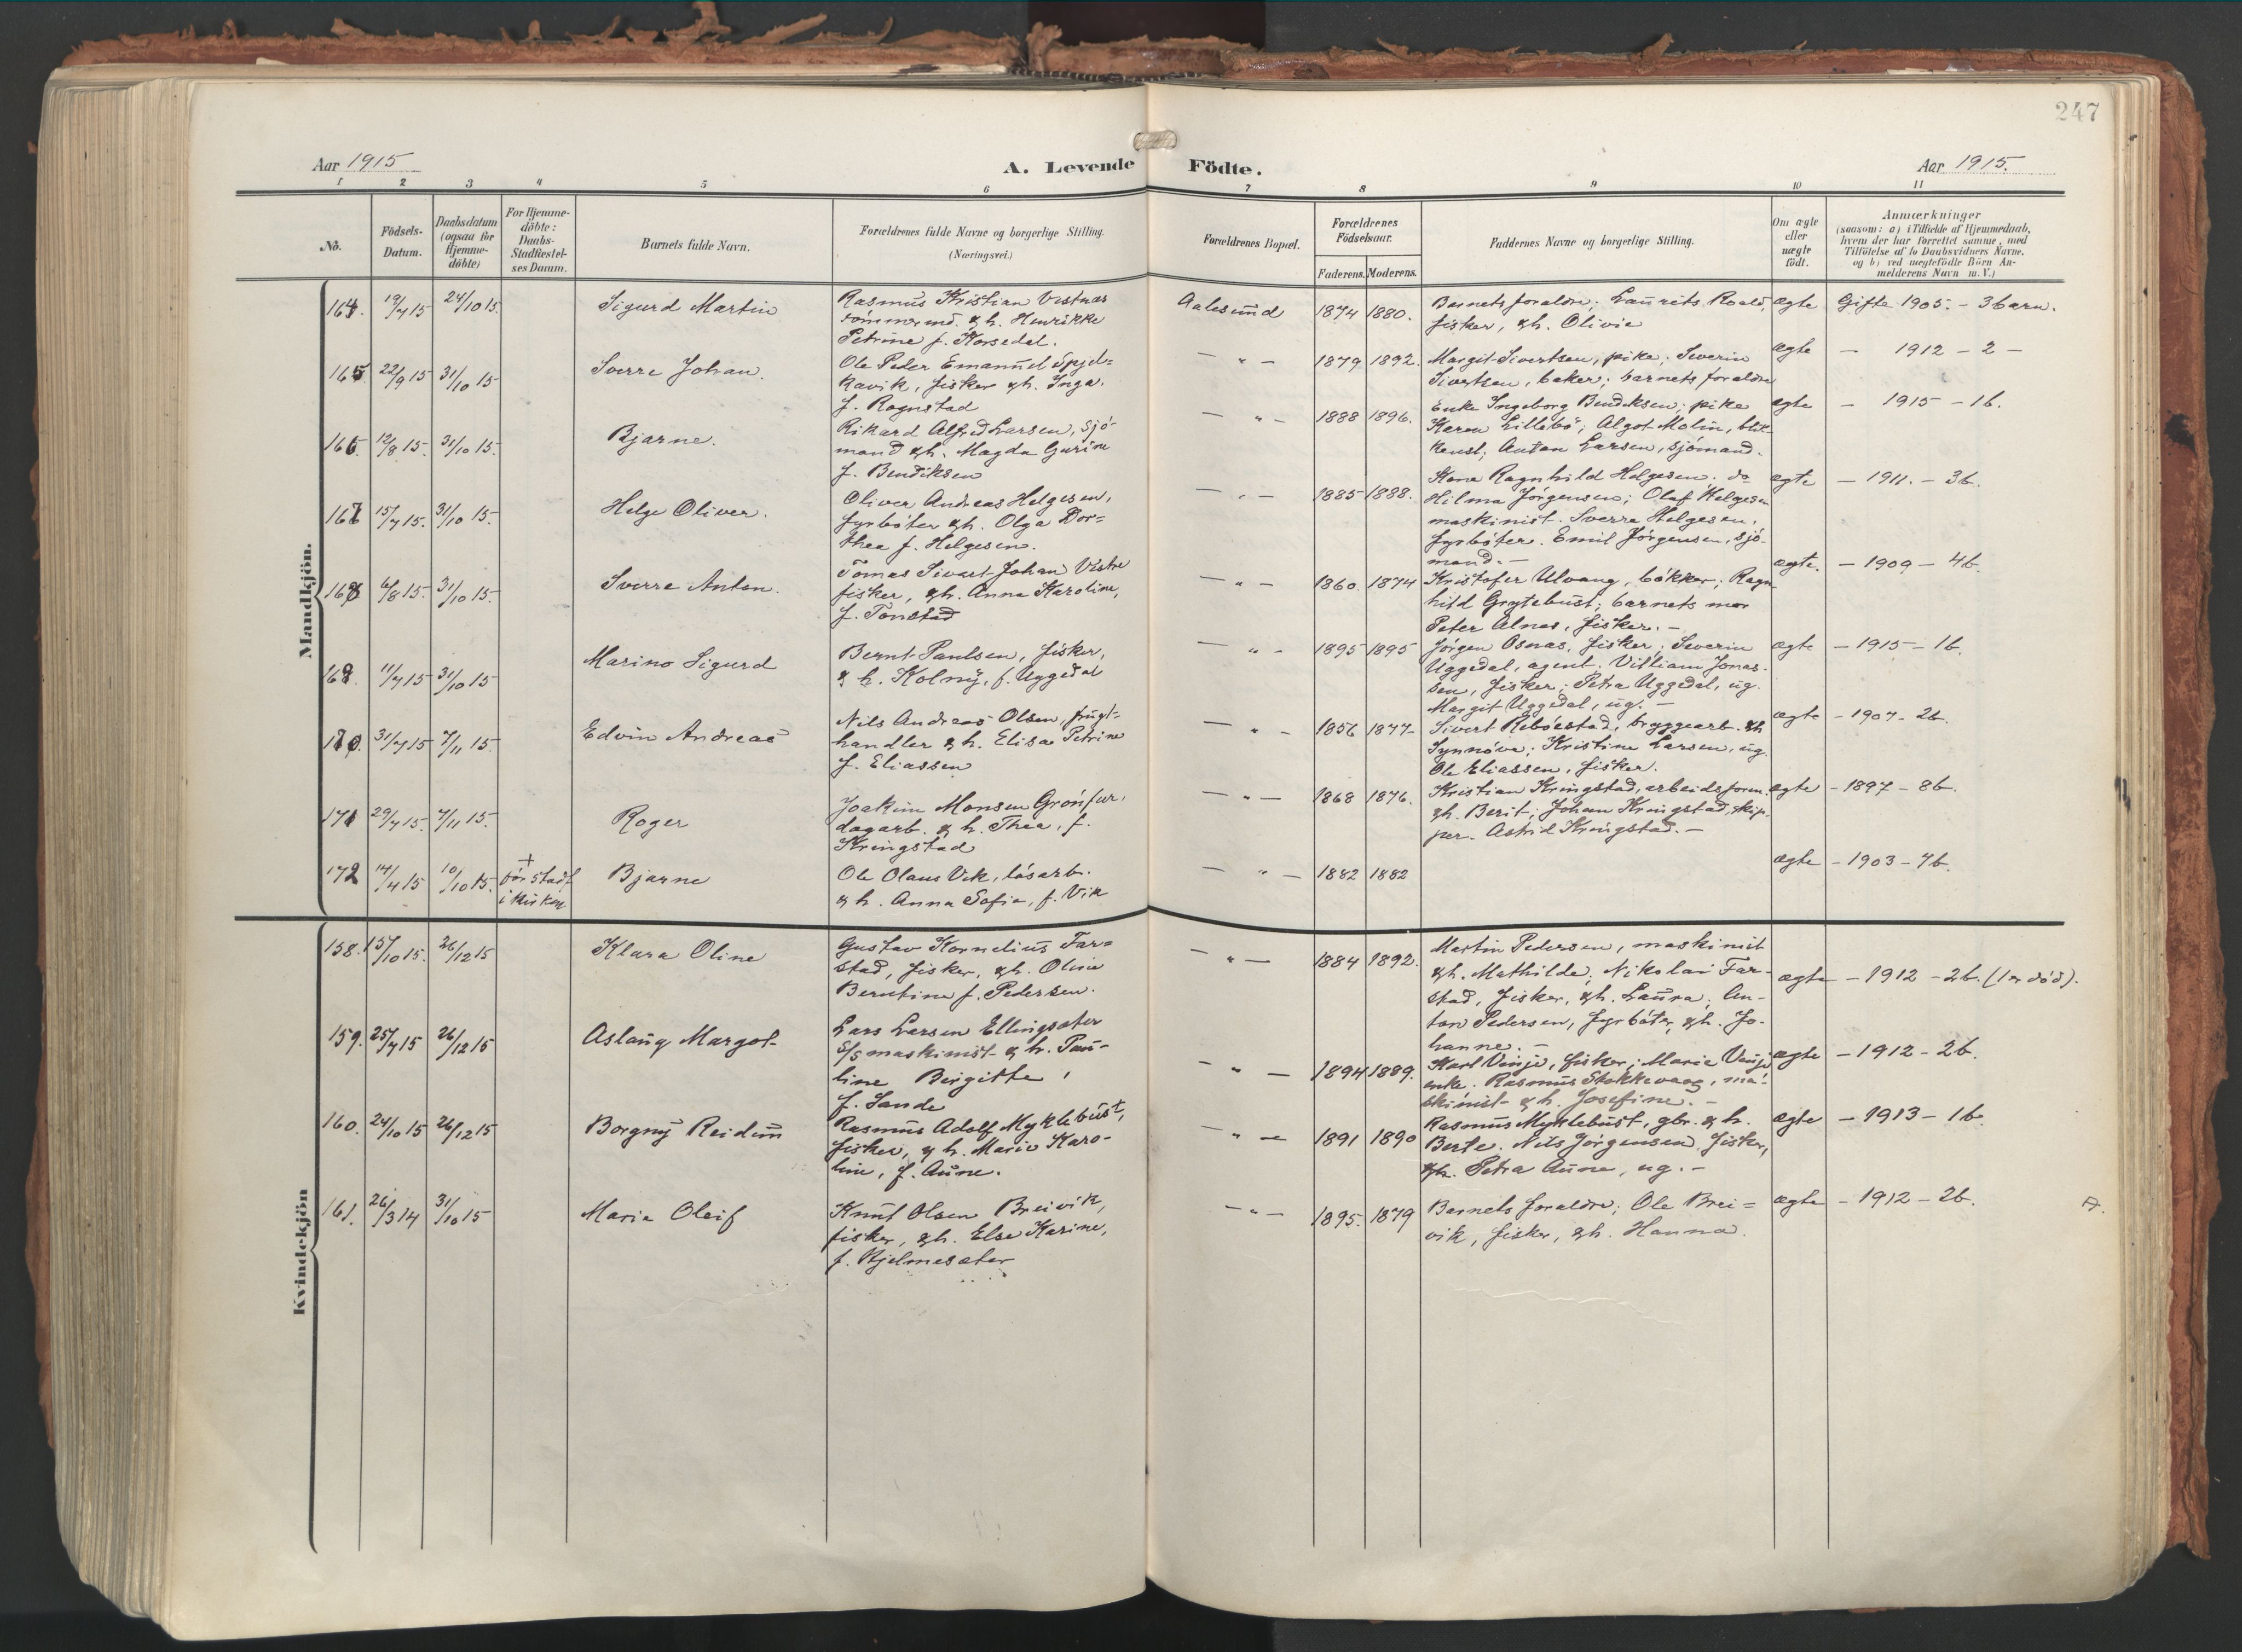 247
Aar 1915
A. Levende Födte.
Aar 1915.
1 2 3 4 5 6 7 8 9 10 11
No.
Födsels-Datum.
Daabsdatum (ogsaa for Hjemme-döbte)
For Hjemme-döbte: Daabs-Stadfæstel-ses Datum.
Barnets fulde Navn.
Forældrenes fulde Navne og borgerlige Stilling.
(Næringsvei.)
Forældrenes Bopæl.
Forældrenes Födselsaar.
Faderens. Moderens.
Faddernes Navne og borgerlige Stilling.
Om ægte eller uægte födt.
Anmærkninger
(saasom: a) i Tilfælde af Hjemmedaab,
hvem der har forrettet samme, med
Tilföielse af to Daabsvidners Navne,
og b) ved uægtefödte Börn An-
melderens Navn m.V.)
Mandkjön.
164. 19/7 15 24/10 15. Sigurd Martin
Rasmus Kristian Vestnas
tömmermd. & h. Henrikke
Petrine f. Korsedal.
Aalesund 1874 1880.
Barnets foraldre; Laurits Roald,
fisker, & h. Olivie
ægte Gifte 1905. - 3 barn.
165. 22/9 15 31/10 15 Sverre Johan.
Ole Peder Emanuel Spjel=
kavik, fisker & h. Inga.
f. Rognstad
— " — 1879 1892.
Margit Sivertsen, pike; Severin
Sivertsen, baker; barnets foraldre
ægte — 1912 - 2 -
166. 12/8 15. 31/10 15. Bjarne.
Rikard Alfred Larsen, sjö-
mand & h. Magda Gurine
f. Bendiksen
— " — 1888 1896.
Enke Ingeborg Bendiksen; pike
Karen Lillebö; Algot Molin, blik-
kensl; Anton Larsen, sjömand.
ægte — 1915 - 1 b.
167 15/7 15. 31/10 15. Helge Oliver.
Oliver Andreas Helgesen,
fyrböter & h. Olga Dor=
thea f. Helgesen.
— " — 1885 1888.
Kone Ragnhild Helgesen; do
Hilma Jörgensen; Olaf Helgesen
maskinist. Sverre Helgesen,
fyrböter. Emil Jörgensen, sjö-
mand. —
ægte — 1911. - 3 b.
168 6/8 15. 31/10 15. Sverre Anton.
Tomas Sivert Johan Vestre
fisker, & h. Anna Karoline,
f. Tonstad
— " — 1860. 1874
Kristofer Ulvang, bökker; Ragn-
hild Grytebust; barnets mor
Peter Alnes, fisker. —
ægte. — 1909 - 4 b.
168. 11/7 15 31/10 15 Marino Sigurd
Bernt Paulsen, fisker,
& h. Kolny, f. Uggedal
— " — 1895 1895
Jörgen Osnas, fisker; Severin
Uggedal, agent. Villiam Jonas-
sen, fisker; Petra Uggedal, ug.
Margit Uggedal, ug. —
ægte — 1915 - 1 b.
170. 31/7 15 7/11 15. Edvin Andreas
Nils Andreas Olsen, frugt=
handler & h. Elisa Petrine
f. Eliassen
— " — 1856 1877
Sivert Rebbestad, bryggearb. & h
Synnöve; Kristine Larsen, ug.
Ole Eliassen, fisker.
ægte — 1907 - 2 b.
171 29/7 15. 7/11 15. Roger
Joakim Monsen Grönfur,
dagarb. & h. Thea, f.
Kringstad
— " — 1868 1876.
Kristian Kringstad, arbeidsform.
& h. Berit; Johan Kringstad, skip-
per. Astrid Kringstad. —
ægte — 1897 - 8 b.
172 14/4 15 10/10 15. + stadf i kirken Bjarne
Ole Olaus Vik, lösarb.
& h. Anna Sofie, f. Vik
— " — 1882 1882
ægte — 1903 - 7 b.
Kvindekjön
158. 15/10 15. 26/12 15 Klara Oline
Gustav Kornelius Far=
stad, fisker, & h. Oline
Berntine f. Pedersen.
— " — 1884 1892.
Martin Pedersen, maskinist
& h. Mathilde; Nikolai Far-
stad, fisker, & h. Laura; An-
ton Pedersen, fyrböter, & h. Jo-
hanne. —
ægte — 1912 - 2 b. (1 er död).
159. 25/7 15 26/12 15 Aslaug Margot
Lars Larsen Ellingsater
S/S maskinist & h. Pau-
line Birgitte,
f. Sande
— " — 1894 1889.
Karl Vinje, fisker; Marie Vinje
enke. Rasmus Stokkevaag, ma-
skinist & h. Josefine. —
ægte — 1912 - 2 b.
160. 24/10 15 26/12 15 Borgny Reidun
Rasmus Adolf Myklebust,
fisker, & h. Marie Karo-
line, f. Aune.
— " — 1891 1890
Rasmus Myklebust, gbr. & h.
Berte. Nils Jörgensen, fisker,
& h. Petra Aune, ug. —
ægte — 1913 - 1 b.
161. 26/3 14 31/10 15 Marie Oleif
Knut Olsen Breivik,
fisker, & h. Else Karine,
f. Hjelmesater
— " — 1895. 1879
Barnets foraldre; Ole Brei=
vik, fisker, & h. Hanna.
ægte — 1912 - 2 b.